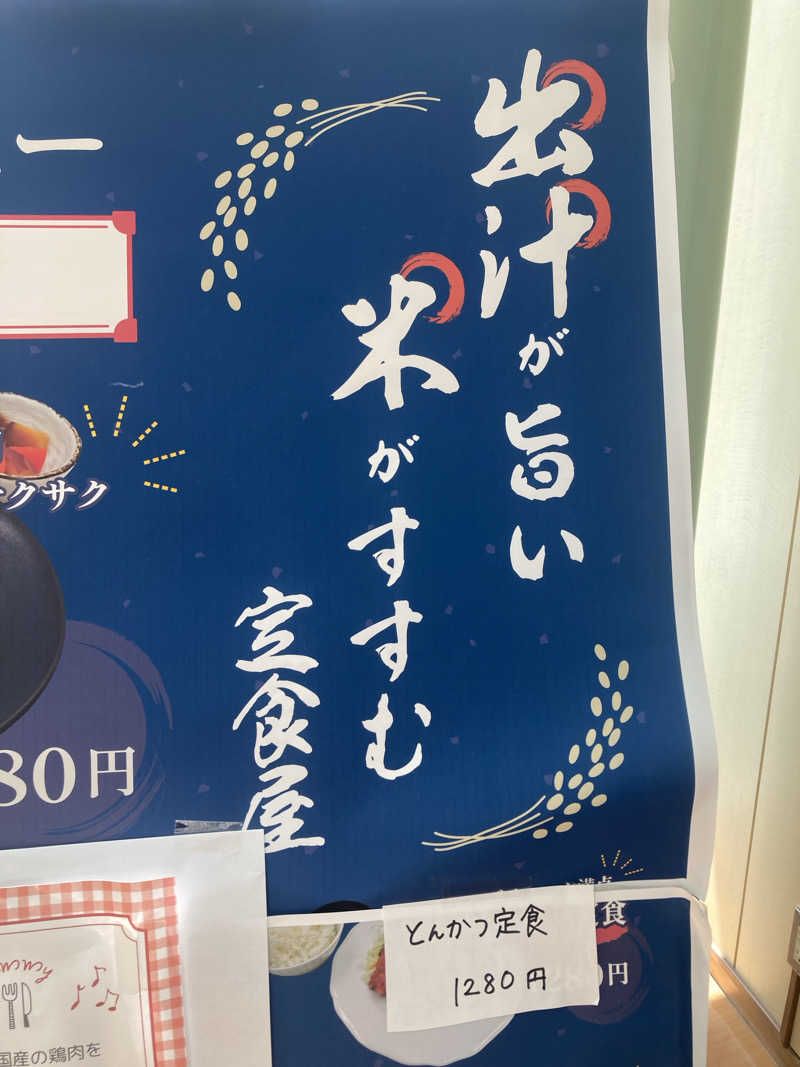 出汁が旨い
米がすすむ
定食屋
ー
クサク
80円
とんかつ定食
1280円
280円
食
mmy
国産の鶏肉を